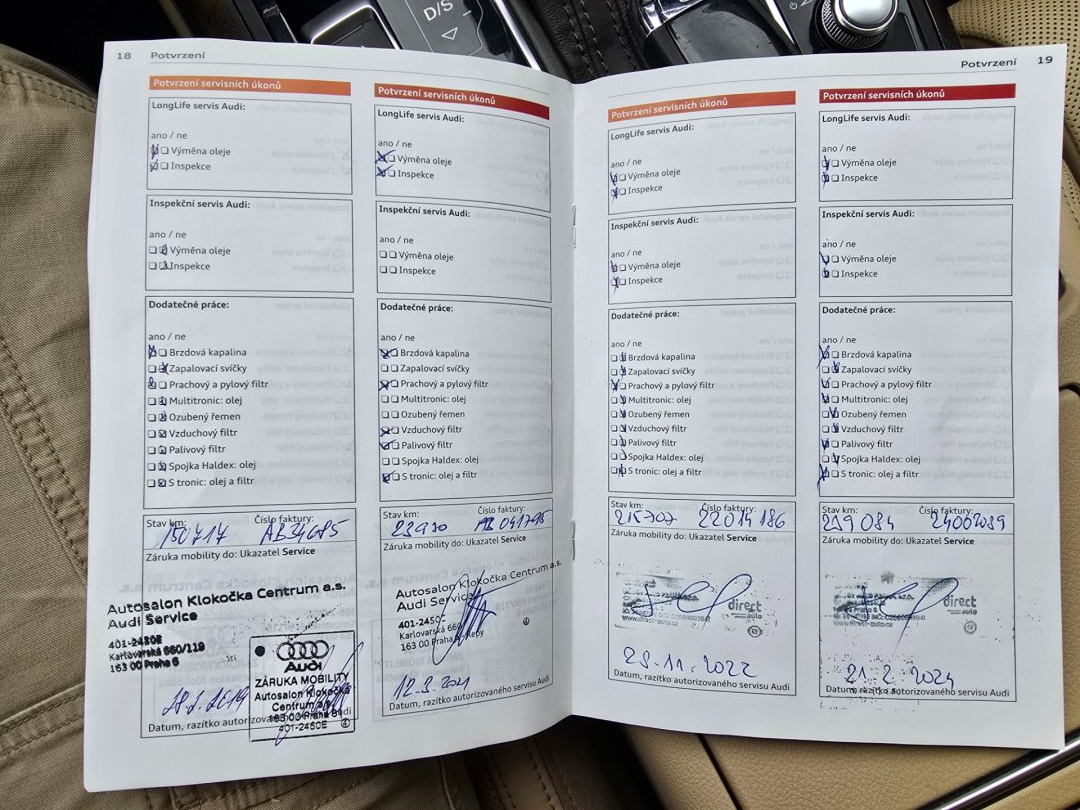 D/S
18 Potvrzení
Potvrzení servisních úkonů
LongLife servis Audi:
ano / ne
Výměna oleje
Inspekce
Inspekční servis Audi:
ano / ne
Výměna oleje
Inspekce
Dodatečné práce:
ano / ne
Brzdová kapalina
Zapalovací svíčky
Prachový a pylový filtr
Multitronic: olej
Ozubený řemen
Vzduchový filtr
Palivový filtr
Spojka Haldex: olej
S tronic: olej a filtr
Stav km: Číslo faktury:
150717 AB34685
Záruka mobility do: Ukazatel Service
Autosalon Klokočka Centrum a.s.
Audi Service
401-2450E
Karlovarská 660/119
163 00 Praha 6
Audi
ZÁRUKA MOBILITY
Autosalon Klokočka
Centrum a.s.
163 00 Praha 6
401-2450E
Datum, razítko autorizovaného servisu Audi
Potvrzení servisních úkonů
LongLife servis Audi:
ano / ne
Výměna oleje
Inspekce
Inspekční servis Audi:
ano / ne
Výměna oleje
Inspekce
Dodatečné práce:
ano / ne
Brzdová kapalina
Zapalovací svíčky
Prachový a pylový filtr
Multitronic: olej
Ozubený řemen
Vzduchový filtr
Palivový filtr
Spojka Haldex: olej
S tronic: olej a filtr
Stav km: Číslo faktury:
041795
Záruka mobility do: Ukazatel Service
Autosalon Klokočka Centrum a.s.
Audi Service
Karlovarská 660
163 00 Praha Řepy
12.3.2021
Datum, razítko autorizovaného servisu Audi
Potvrzení 19
Potvrzení servisních úkonů
LongLife servis Audi:
ano / ne
Výměna oleje
Inspekce
Inspekční servis Audi:
ano / ne
Výměna oleje
Inspekce
Dodatečné práce:
ano / ne
Brzdová kapalina
Zapalovací svíčky
Prachový a pylový filtr
Multitronic: olej
Ozubený řemen
Vzduchový filtr
Palivový filtr
Spojka Haldex: olej
S tronic: olej a filtr
Stav km: Číslo faktury:
215707 22014186
Záruka mobility do: Ukazatel Service
direct
auto
www.direct-auto.cz
29.11.2022
Datum, razítko autorizovaného servisu Audi
Potvrzení servisních úkonů
LongLife servis Audi:
ano / ne
Výměna oleje
Inspekce
Inspekční servis Audi:
ano / ne
Výměna oleje
Inspekce
Dodatečné práce:
ano / ne
Brzdová kapalina
Zapalovací svíčky
Prachový a pylový filtr
Multitronic: olej
Ozubený řemen
Vzduchový filtr
Palivový filtr
Spojka Haldex: olej
S tronic: olej a filtr
Stav km: Číslo faktury:
239084 24002039
Záruka mobility do: Ukazatel Service
direct
auto
21.2.2024
Datum, razítko autorizovaného servisu Audi